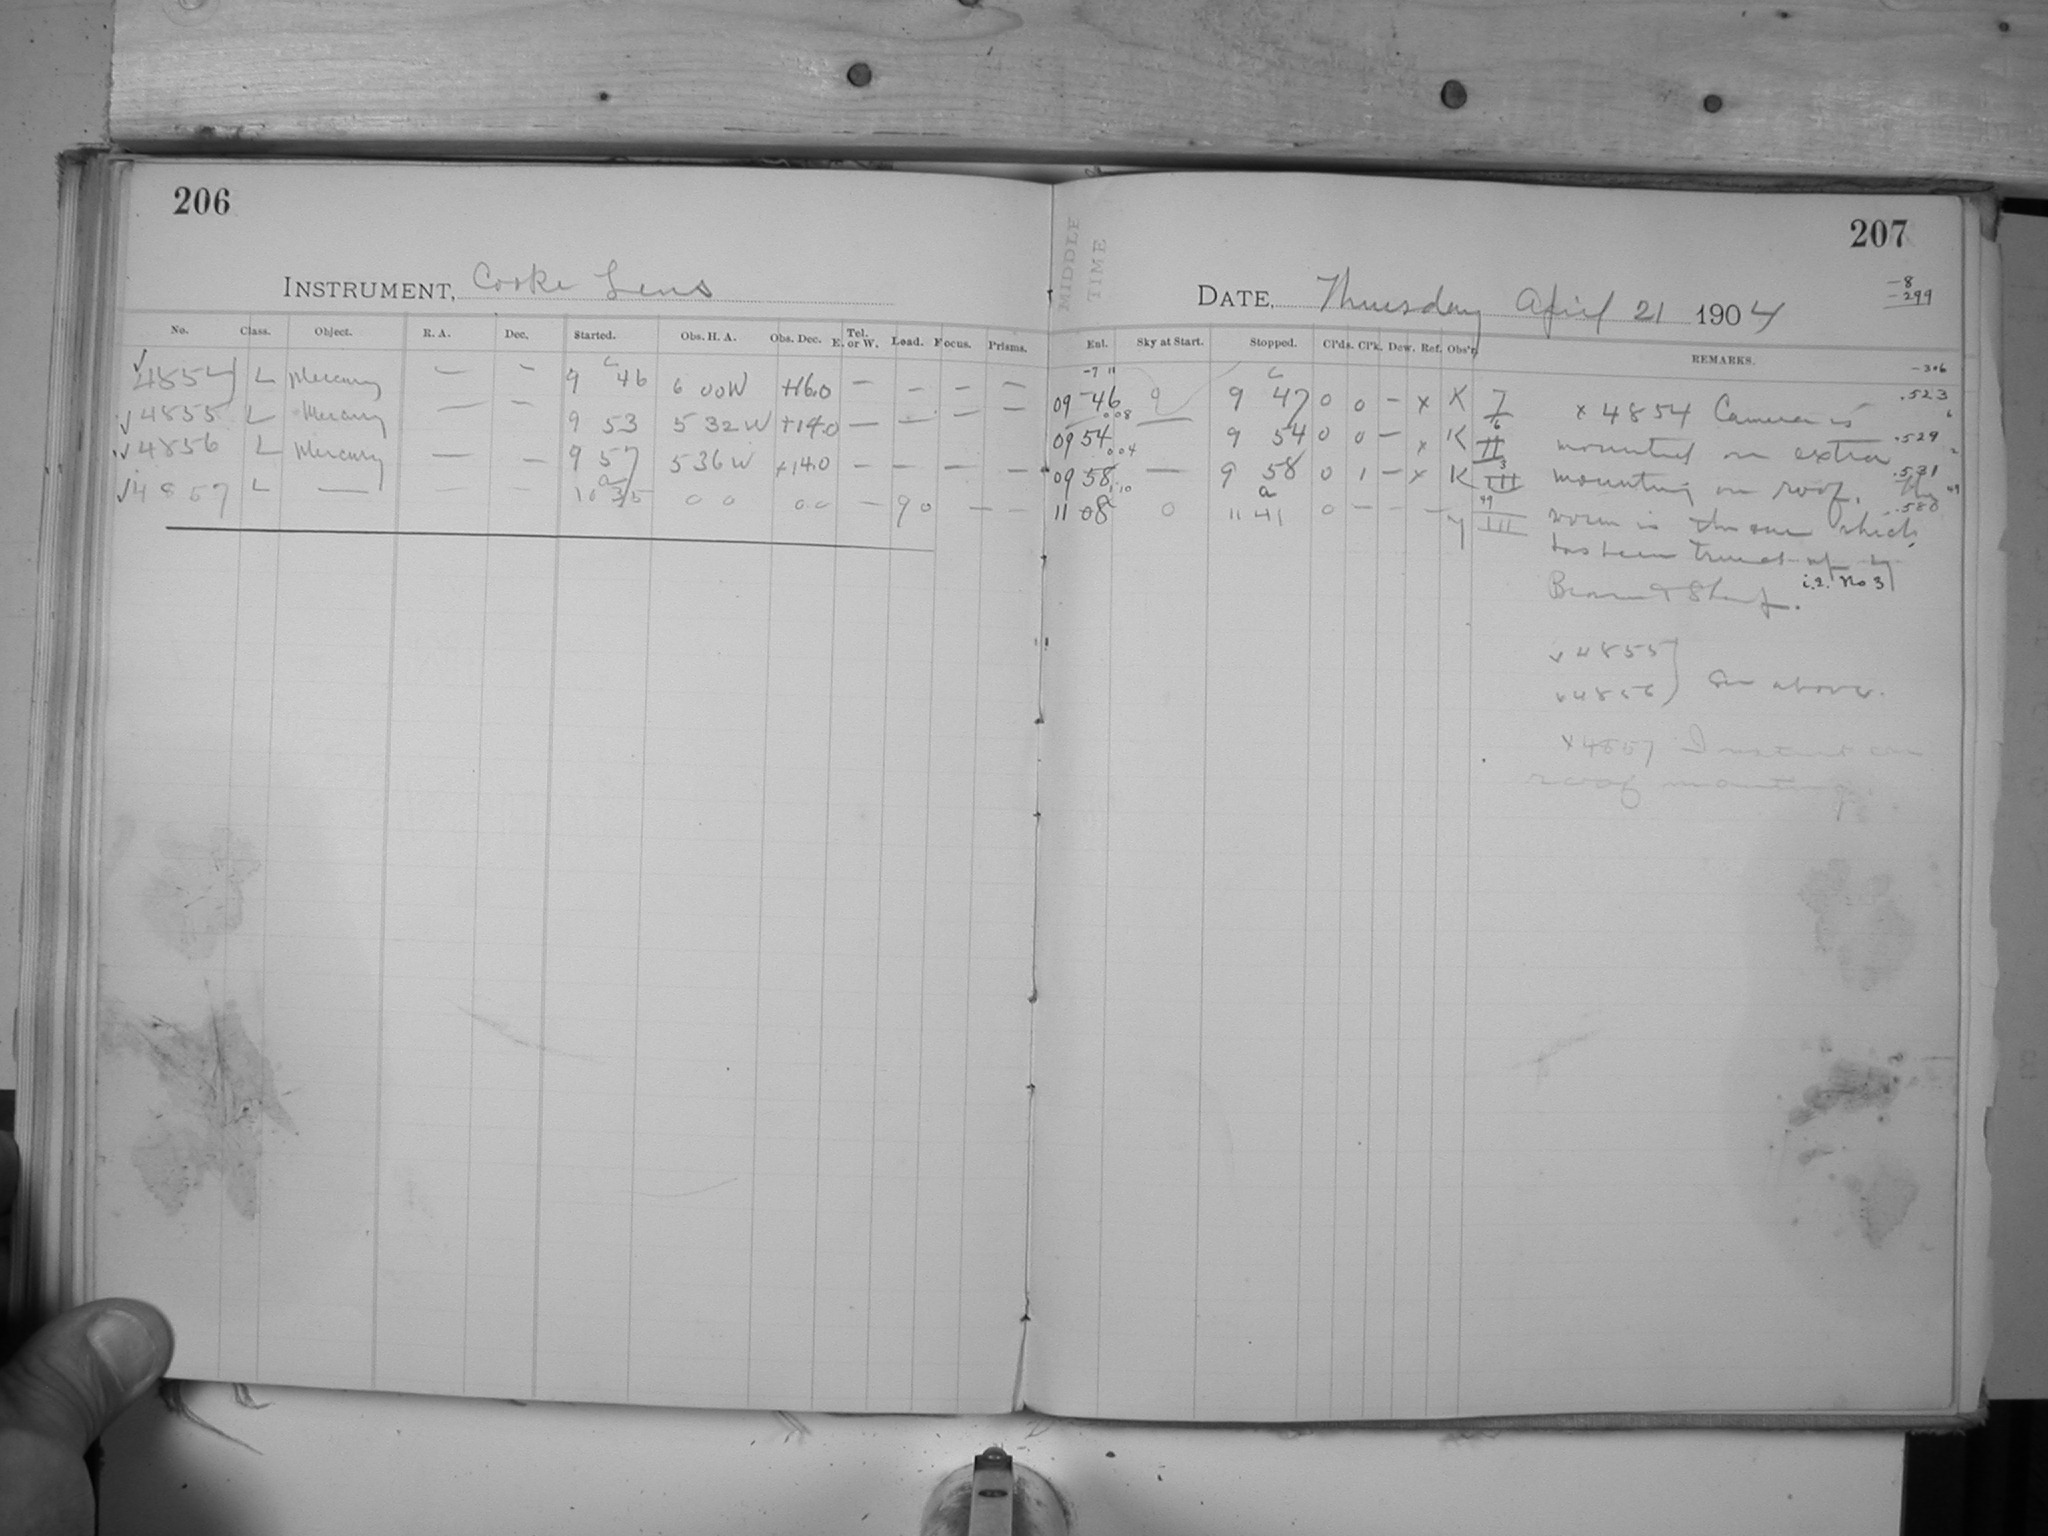 206
INSTRUMENT, Cooke Lens
No. Class. Object. R. A. Dec. Started. Obs. H. A. Obs. Dec. Tel. E. or W. Load. Focus. Prisms.
✓ 4854 L Mercury — — 9 46 6 00W +16.0 — — — —
✓ 4855 L Mercury — — 9 53 5 32W +14.0 — — — —
✓ 4856 L Mercury — — 9 57 5 36W +14.0 — — — —
✓ 4857 L — — — 10 35 0 0 0.0 — 90 — —
MIDDLE
TIME
207
DATE, Thursday April 21 1904
-8
-299
Ent. Sky at Start. Stopped. Cl'ds. Cl'k. Dew. Ref. Obs'r. REMARKS.
-306
09 46 9 9 47 0 0 — x K 7
09 54 — 9 54 0 0 — x K II
09 58 — 9 58 0 1 — x K III
11 08 0 11 41 0 — — — y III
.523
.529
.531
.580
x 4854 Camera is
mounted on extra
mounting on roof. The
worm is the one which
has been trued up by
Brown & Sharp. i.e. No 3
✓ 4855
✓ 4856 } See above.
x 4857 Instrument on
roof mounting.